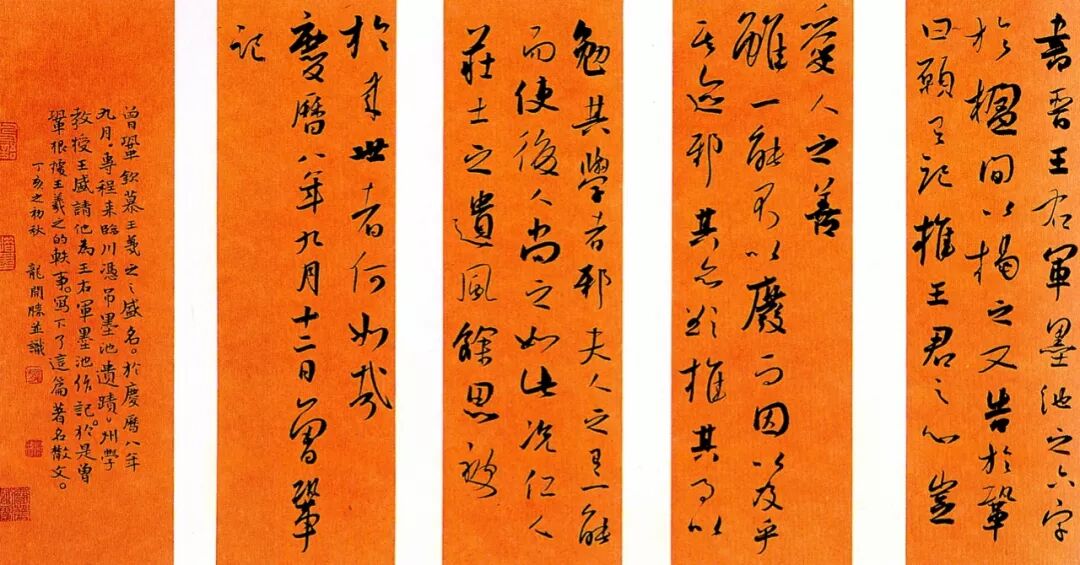 書晉王右軍墨池之六字
於楹間以揭之又告於鞏
曰願有記推王君之心豈
愛人之善
雖一能不以廢而因以及乎
其迹邪其亦欲推其事以
勉其學者邪夫人之有一能
而使後人尚之如此況仁人
莊士之遺風餘思被
於來世者何如哉
慶曆八年九月十二日曾鞏
記
曾鞏欽慕王羲之之盛名。於慶曆八年
九月,專程来臨川憑吊墨池遺蹟。州學
教授王盛請他為王右軍墨池作記。於是曾
鞏根據王羲之的軼事。寫下了這篇著名散文。
丁亥之初秋 龍開勝並識